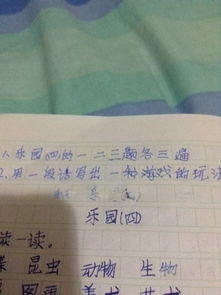 1.乐园(四)的一二三题各三遍
2.用一段话写出一种游戏的玩法
乐园(四)
读一读。
昆虫 动物 生物
图画 美术